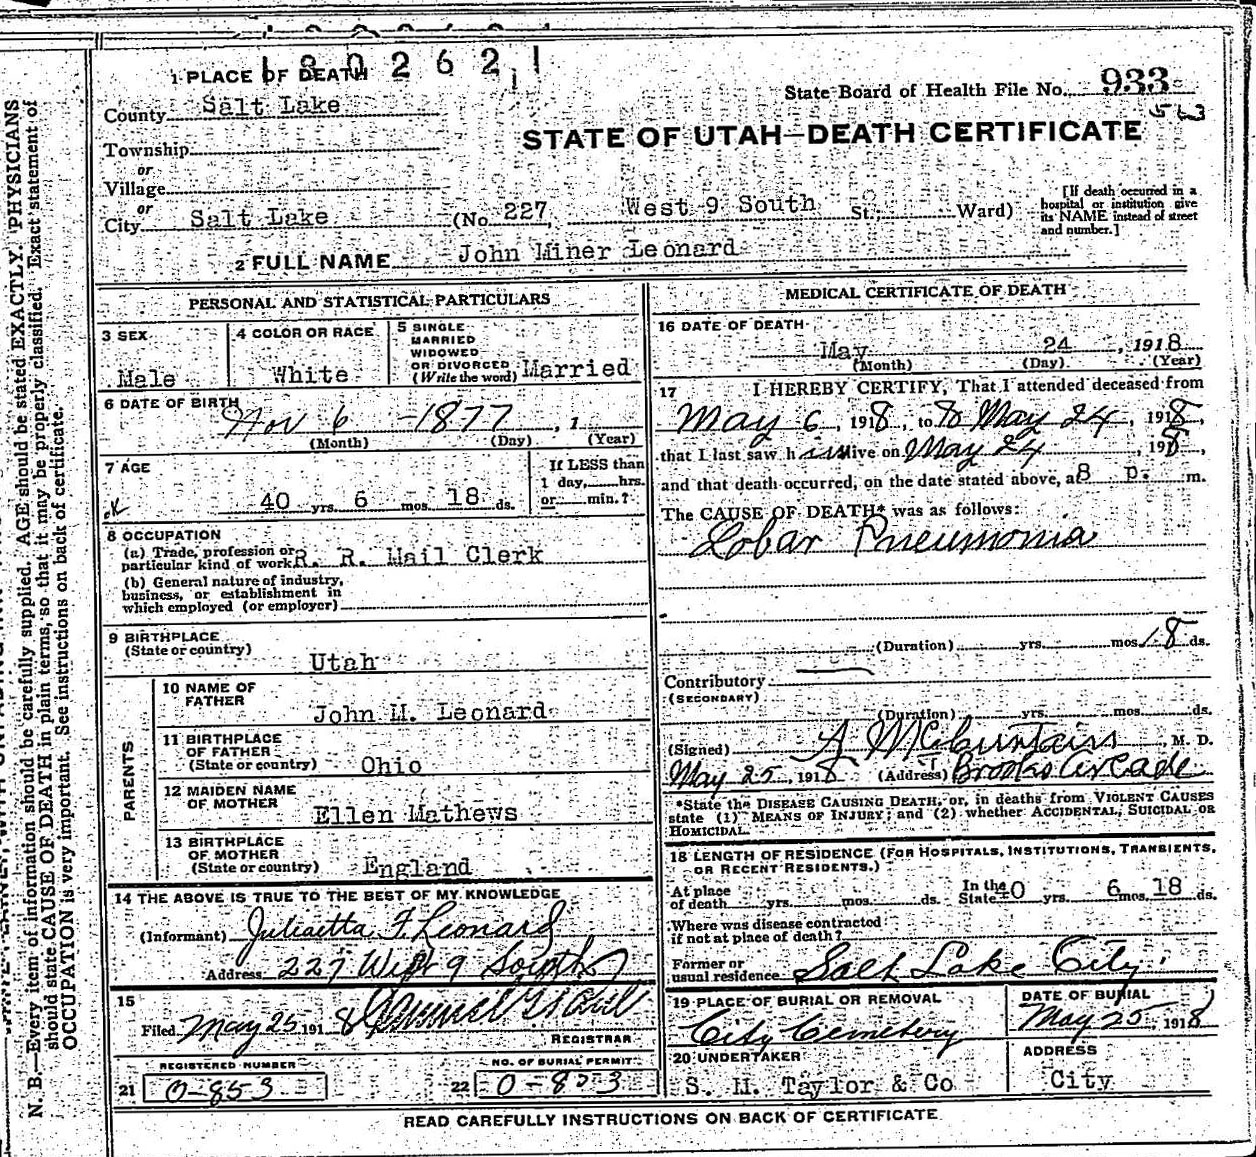 1 8 0 2 6 2 1
1 PLACE OF DEATH
County Salt Lake
State Board of Health File No. 933
STATE OF UTAH—DEATH CERTIFICATE
Township
or
Village
or
City Salt Lake (No. 227, West 9 South St.; Ward)
[If death occurred in a
hospital or institution give
its NAME instead of street
and number.]
2 FULL NAME John Miner Leonard
PERSONAL AND STATISTICAL PARTICULARS
3 SEX
Male
4 COLOR OR RACE
White
5 SINGLE
MARRIED
WIDOWED
OR DIVORCED
(Write the word) Married
6 DATE OF BIRTH
Nov 6 -1877, 1
(Month) (Day) (Year)
7 AGE
40 yrs. 6 mos. 18 ds.
If LESS than
1 day, hrs.
or min.?
8 OCCUPATION
(a) Trade, profession or
particular kind of work R. R. Mail Clerk
(b) General nature of industry,
business, or establishment in
which employed (or employer)
9 BIRTHPLACE
(State or country)
Utah
PARENTS
10 NAME OF
FATHER
John M. Leonard
11 BIRTHPLACE
OF FATHER
(State or country) Ohio
12 MAIDEN NAME
OF MOTHER
Ellen Mathews
13 BIRTHPLACE
OF MOTHER
(State or country) England
14 THE ABOVE IS TRUE TO THE BEST OF MY KNOWLEDGE
(Informant) Juliaetta F. Leonard
Address 227 West 9 South
15
Filed May 25 1918
REGISTRAR
REGISTERED NUMBER
21 0-853
NO. OF BURIAL PERMIT
22 0-853
MEDICAL CERTIFICATE OF DEATH
16 DATE OF DEATH
May 24, 1918
(Month) (Day) (Year)
17 I HEREBY CERTIFY, That I attended deceased from
May 6, 1918, to May 24, 1918,
that I last saw him alive on May 24, 1918,
and that death occurred, on the date stated above, at 8 p. m.
The CAUSE OF DEATH* was as follows:
Lobar Pneumonia
(Duration) yrs. mos. 18 ds.
Contributory
(SECONDARY)
(Duration) yrs. mos. ds.
(Signed) M. D.
May 25, 1918 (Address) Brooks Arcade
*State the DISEASE CAUSING DEATH, or, in deaths from VIOLENT CAUSES
state (1) MEANS OF INJURY; and (2) whether ACCIDENTAL, SUICIDAL OR
HOMICIDAL.
18 LENGTH OF RESIDENCE (FOR HOSPITALS, INSTITUTIONS, TRANSIENTS,
OR RECENT RESIDENTS.)
At place
of death yrs. mos. ds.
In the
State 40 yrs. 6 mos. 18 ds.
Where was disease contracted
if not at place of death?
Former or
usual residence Salt Lake City.
19 PLACE OF BURIAL OR REMOVAL
City Cemetery
DATE OF BURIAL
May 25, 1918
20 UNDERTAKER
S. M. Taylor & Co
ADDRESS
City
READ CAREFULLY INSTRUCTIONS ON BACK OF CERTIFICATE.
N. B.—Every item of information should be carefully supplied. AGE should be stated EXACTLY. PHYSICIANS
should state CAUSE OF DEATH in plain terms, so that it may be properly classified. Exact statement of
OCCUPATION is very important. See instructions on back of certificate.